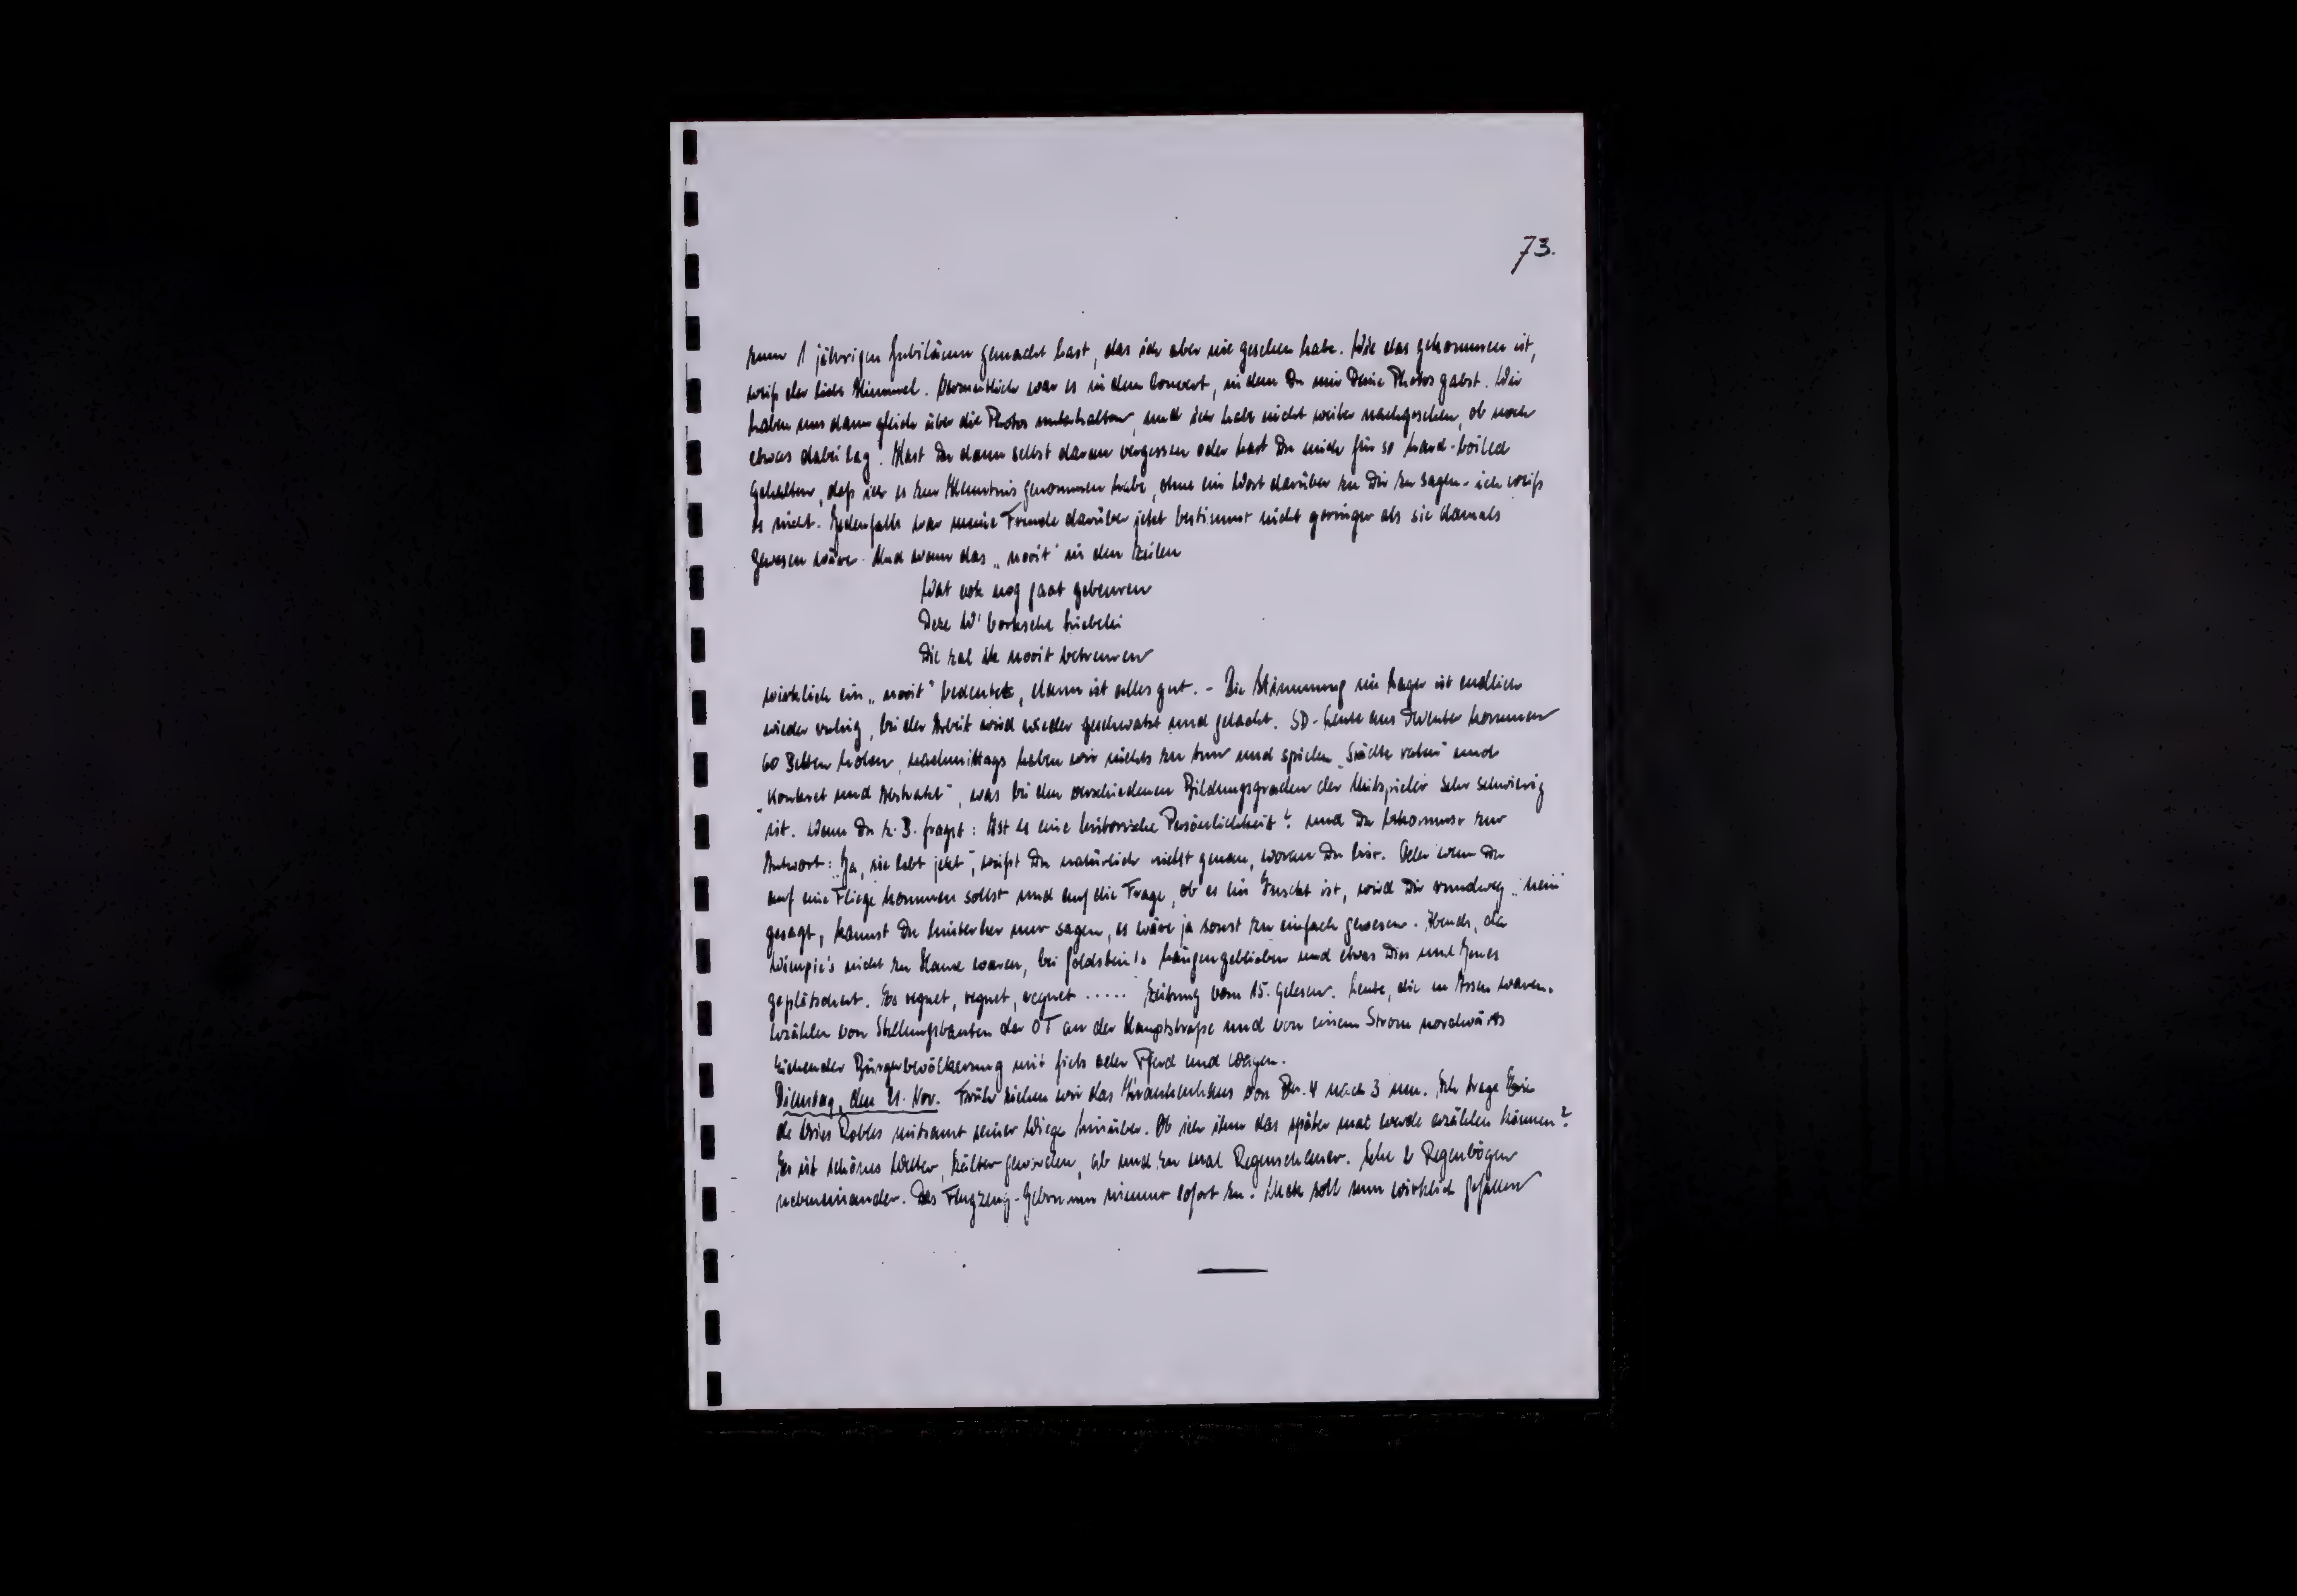 73.
zum 1 jährigen Jubiläum gemacht hast, das ich aber nie gesehen habe. Wie das gekommen ist,
weiß der liebe Himmel. Vermutlich war es in dem Couvert, in dem Du mir Deine Photos gabst. Wir
haben uns dann gleich über die Photos unterhalten, und ich habe nicht weiter nachgesehen, ob noch
etwas dabei lag. Hast Du dann selbst daran vergessen oder hast Du mich für so hard-boiled
gehalten, daß ich es zur Kenntnis genommen habe, ohne ein Wort darüber zu Dir zu sagen - ich weiß
es nicht. Jedenfalls war meine Freude darüber jetzt bestimmt nicht geringer als sie damals
gewesen wäre. Und wenn das „nooit“ in den Zeilen
Wat ook nog gaat gebeuren
Deze W'borksche Liebelei
Die zal ik nooit betreuren
wirklich ein „nooit“ bedeutet, dann ist alles gut. - Die Stimmung im Lager ist endlich
wieder ruhig, bei der Arbeit wird wieder geschwatzt und gelacht. SD-Leute aus Deventer kommen
60 Betten holen, nachmittags haben wir nichts zu tun und spielen „Städte raten“ und
„Konkret und Abstrakt“, was bei den verschiedenen Bildungsgraden der Mitspieler sehr schwierig
ist. Wenn Du z.B. fragst: Ist es eine historische Persönlichkeit? und Du bekommst zur
Antwort: „Ja, sie lebt jetzt“, weißt Du natürlich nicht genau, woran Du bist. Oder wenn Du
auf eine Fliege kommen sollst und auf die Frage, ob es ein Insekt ist, wird Dir rundweg „nein“
gesagt, kannst Du hinterher nur sagen, es wäre ja sonst zu einfach gewesen. Abends, da
Wimpie's nicht zu Hause waren, bei Goldstein's hängengeblieben und etwas Dies und Jenes
geplätschert. Es regnet, regnet, regnet ..... Zeitung vom 15. gelesen. Leute, die in Assen waren,
erzählen von Stellungsbauten der OT an der Hauptstraße und von einem Strom nordwärts
ziehender Bürgerbevölkerung mit fiets oder Pferd und Wagen.
Dienstag, den 21. Nov. Früh ziehen wir das Krankenhaus von Br. 4 nach 3 um. Ich trage
de Vries Robles mitsamt seiner Wiege hinüber. Ob ich ihm das später mal werde erzählen können?
Es ist schönes Wetter, kälter geworden, ab und zu mal Regenschauer. Sehe 2 Regenbögen
nebeneinander. Das Flugzeug-Gebrumm nimmt sofort zu. soll nun wirklich gefallen